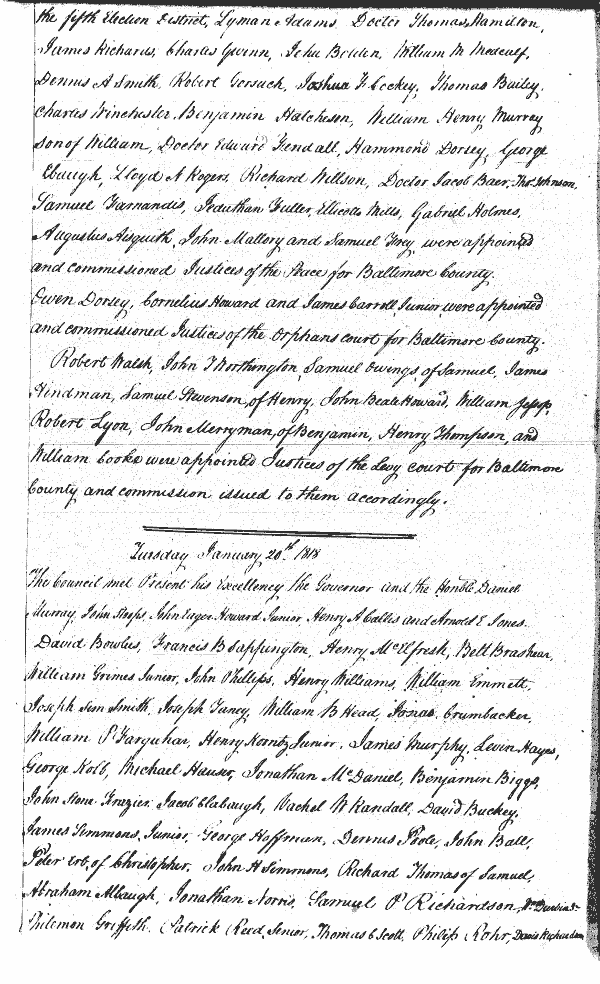 the fifth Election District, Lyman Adams, Doctor Thomas Hamilton,
James Richards, Charles Gwinn, John Bowen, William M Medcalf,
Dennis A Smith, Robert Gorsuch, Joshua F Cockey, Thomas Bailey,
Charles Winchester, Benjamin Hatcheson, William Henry Murray
son of William, Doctor Edward Kendall, Hammond Dorsey, George
Ebaugh, Lloyd A Rogers, Richard Willson, Doctor Jacob Baer, Thos Johnson,
Samuel Farnandis, Jeduthan Fuller, Ellicotts Mills, Gabriel Holmes,
Augustus Aisquith, John Mallory and Samuel Frey were appointed
and commissioned Justices of the Peace for Baltimore County.
Owen Dorsey, Cornelius Howard and James Carroll Junior were appointed
and commissioned Justices of the Orphans court for Baltimore County.
Robert Walsh, John T Worthington, Samuel Owings, of Samuel, James
Hindman, Samuel Stevenson, of Henry, John Beale Howard, William Jessop,
Robert Lyon, John Merryman, of Benjamin, Henry Thompson, and
William Cooke were appointed Justices of the Levy court for Baltimore
County and commission issued to them accordingly.
Tuesday January 20th 1818
The Council met Present his Excellency the Governor and the Honble Daniel
Murray, John Stoops, John Eager Howard Junior, Henry A Callis and Arnold E Jones.
David Bowlus, Francis B Sappington, Henry McElfresh, Belt Brashear,
William Grimes Junior, John Phillips, Henry Williams, William Emmett,
Joseph Sim Smith, Joseph Taney, William B Head, Jonas Crumbacker,
William P Farquhar, Henry Kuntz Junior, James Murphy, Levin Hayes,
George Kolb, Michael Hauser, Jonathan McDaniel, Benjamin Biggs,
John Stone Frazier, Jacob Clabaugh, Vachel W Randall, David Buckey,
James Simmons, Junior, George Hoffman, Dennis Poole, John Ball,
Peter Erb, of Christopher, John H Simmons, Richard Thomas of Samuel,
Abraham Albaugh, Jonathan Norris, Samuel P Richardson, Wm Durbin Sr
Philemon Griffith, Patrick Reed, Senior, Thomas C Scott, Philip Rohr, Davis Richardson